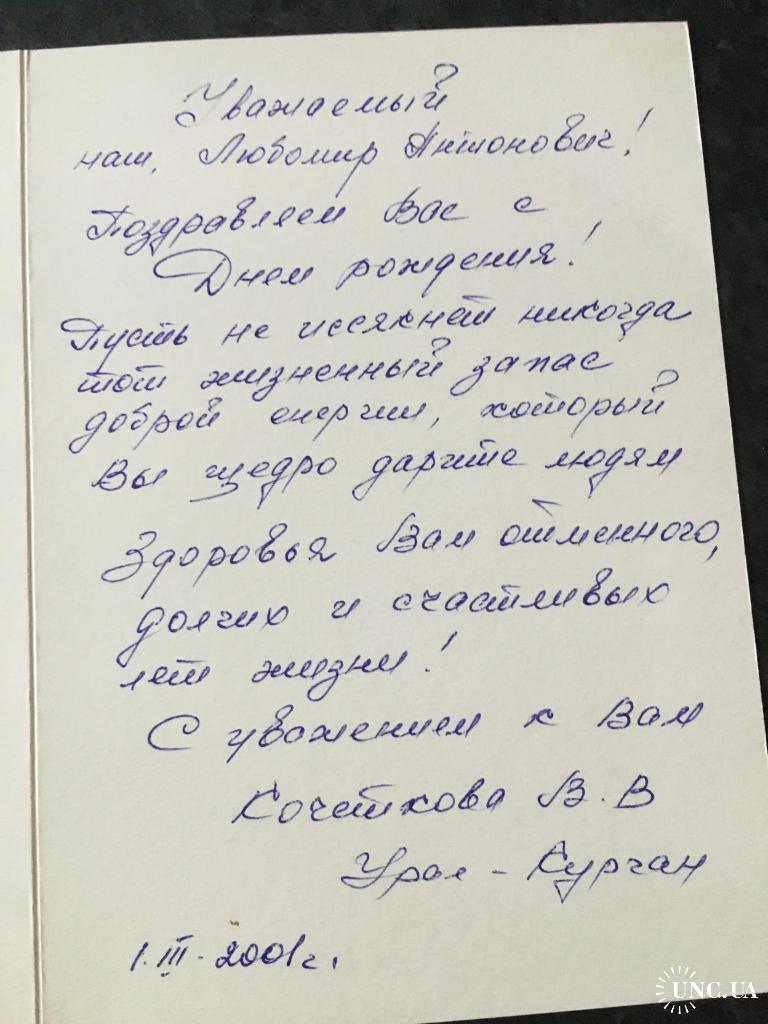 Уважаемый
наш, Любомир Антонович!
Поздравляем Вас с
Днем рождения!
Пусть не иссякнет никогда
тот жизненный запас
доброй енергии, который
Вы щедро дарите людям
Здоровья Вам отменного,
долгих и счастливых
лет жизни!
С уважением к Вам
Кочеткова В.В
Урал - Курган
1.III.2001г.
UNC.UA